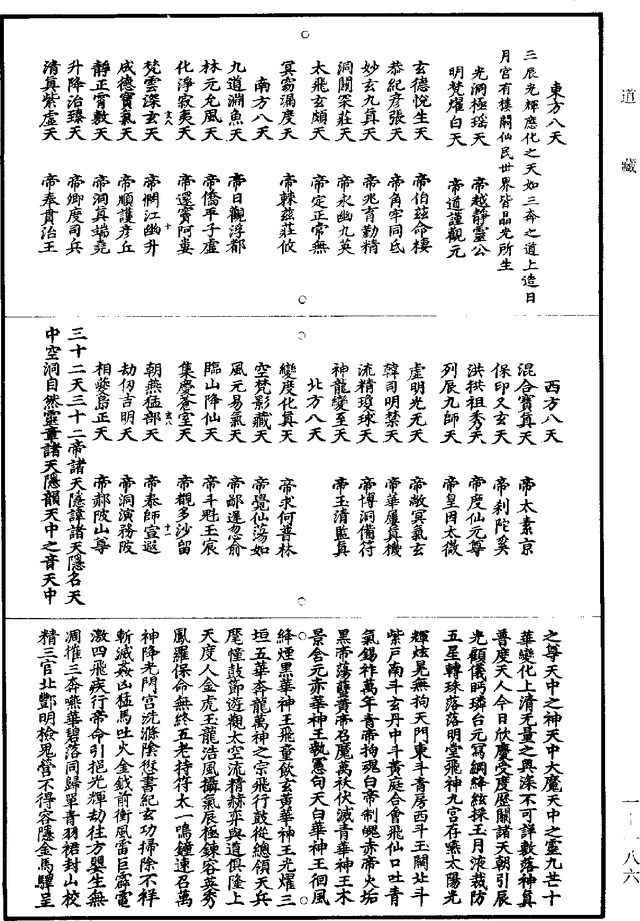 道藏
東方八天
三辰光輝應化之天如三奔之道上造日
月宮有樓閣仙民世界皆晶光所生
光洞極瑶天 帝越靜靈公
明梵燿白天 帝道謹觀元
玄德悅生天 帝伯兹命棲
恭紀彥張天 帝角牢同氐
妙玄九真天 帝兆育勤精
洞關罙莊天 帝永幽九英
太飛玄頗天 帝定正常無
冥窈漏度天 帝棘兹莊攸
南方八天
九道淵魚天 帝日觀浮都
林元允風天 帝僑平子虛
化淨寂夷天 帝還賓阿婁
梵雲深玄天 帝惘江幽升
咸德寶氣天 帝順護彥丘
靜正霄數天 帝洞真端堯
升降治臻天 帝卿度司兵
清真紫虛天 帝奉貫治王
西方八天
混合寶真天 帝太素京
保印又玄天 帝刹陀奚
洪拱祖秀天 帝度仙元尊
列辰九師天 帝皇因太微
虛明光无天 帝敵冥氣玄
韓司明禁天 帝華屢真機
流精瓊球天 帝博洞備符
神龍變至天 帝玉清監真
北方八天
變度化真天 帝求何普林
空梵影藏天 帝覺仙蕩如
風元易氣天 帝鄙遲忽俞
臨山降仙天 帝斗魁王宸
集慶蒼室天 帝觀多沙留
朝燕猛部天 帝泰師宣遐
劫仞吉明天 帝洞演務陂
相藥島正天 帝郝陂山尊
三十二天三十二帝諸天隱諱諸天隱名天
中空洞自然靈章諸天隱韻天中之音天中
之尊天中之神天中大魔天中之靈九芒十
華變化上清无量之奧深不可詳敷落神真
普度天人今日欣慶受度歷關諸天朝引展
光顧儀眄璘台元冩綱絳絃採玉月液裁防
五星轉珠落落明堂飛神九宮存霐太陽光
輝炫晃無拘天門東斗青房西斗玉闕北斗
紫戸南斗玄丹中斗黃庭合會飛仙口吐青
氣錫祚萬年青帝拘魂白帝制魄赤帝火垢
黑帝蕩孽黃帝召魔萬秋伏滅青華神王木
景舍元赤華神王執憲句天白華神王徊風
絳煙黑華神王飛童飲玄黃華神王光燿三
垣五華奔龍萬神之宗飛行鼓從總領天兵
麾幢鼓節遊觀太空流精赫弈與道俱隆上
天度人金虎玉龍浩風攝氣辰極錬容英秀
鳳羅保命無終五老持符太一鳴鐘速召萬
神降光門宮洗滌陰愆書紀玄功掃除不祥
斬滅姦凶猛馬吐火金鉞前衝風雷巨霹電
激四飛疾行帝命引挹光輝劫往方嬰生無
凋摧三奔嚥華碧落同歸單青羽裙封山校
精三官北酆明檢鬼營不得容隱金馬驛呈
一-一八六